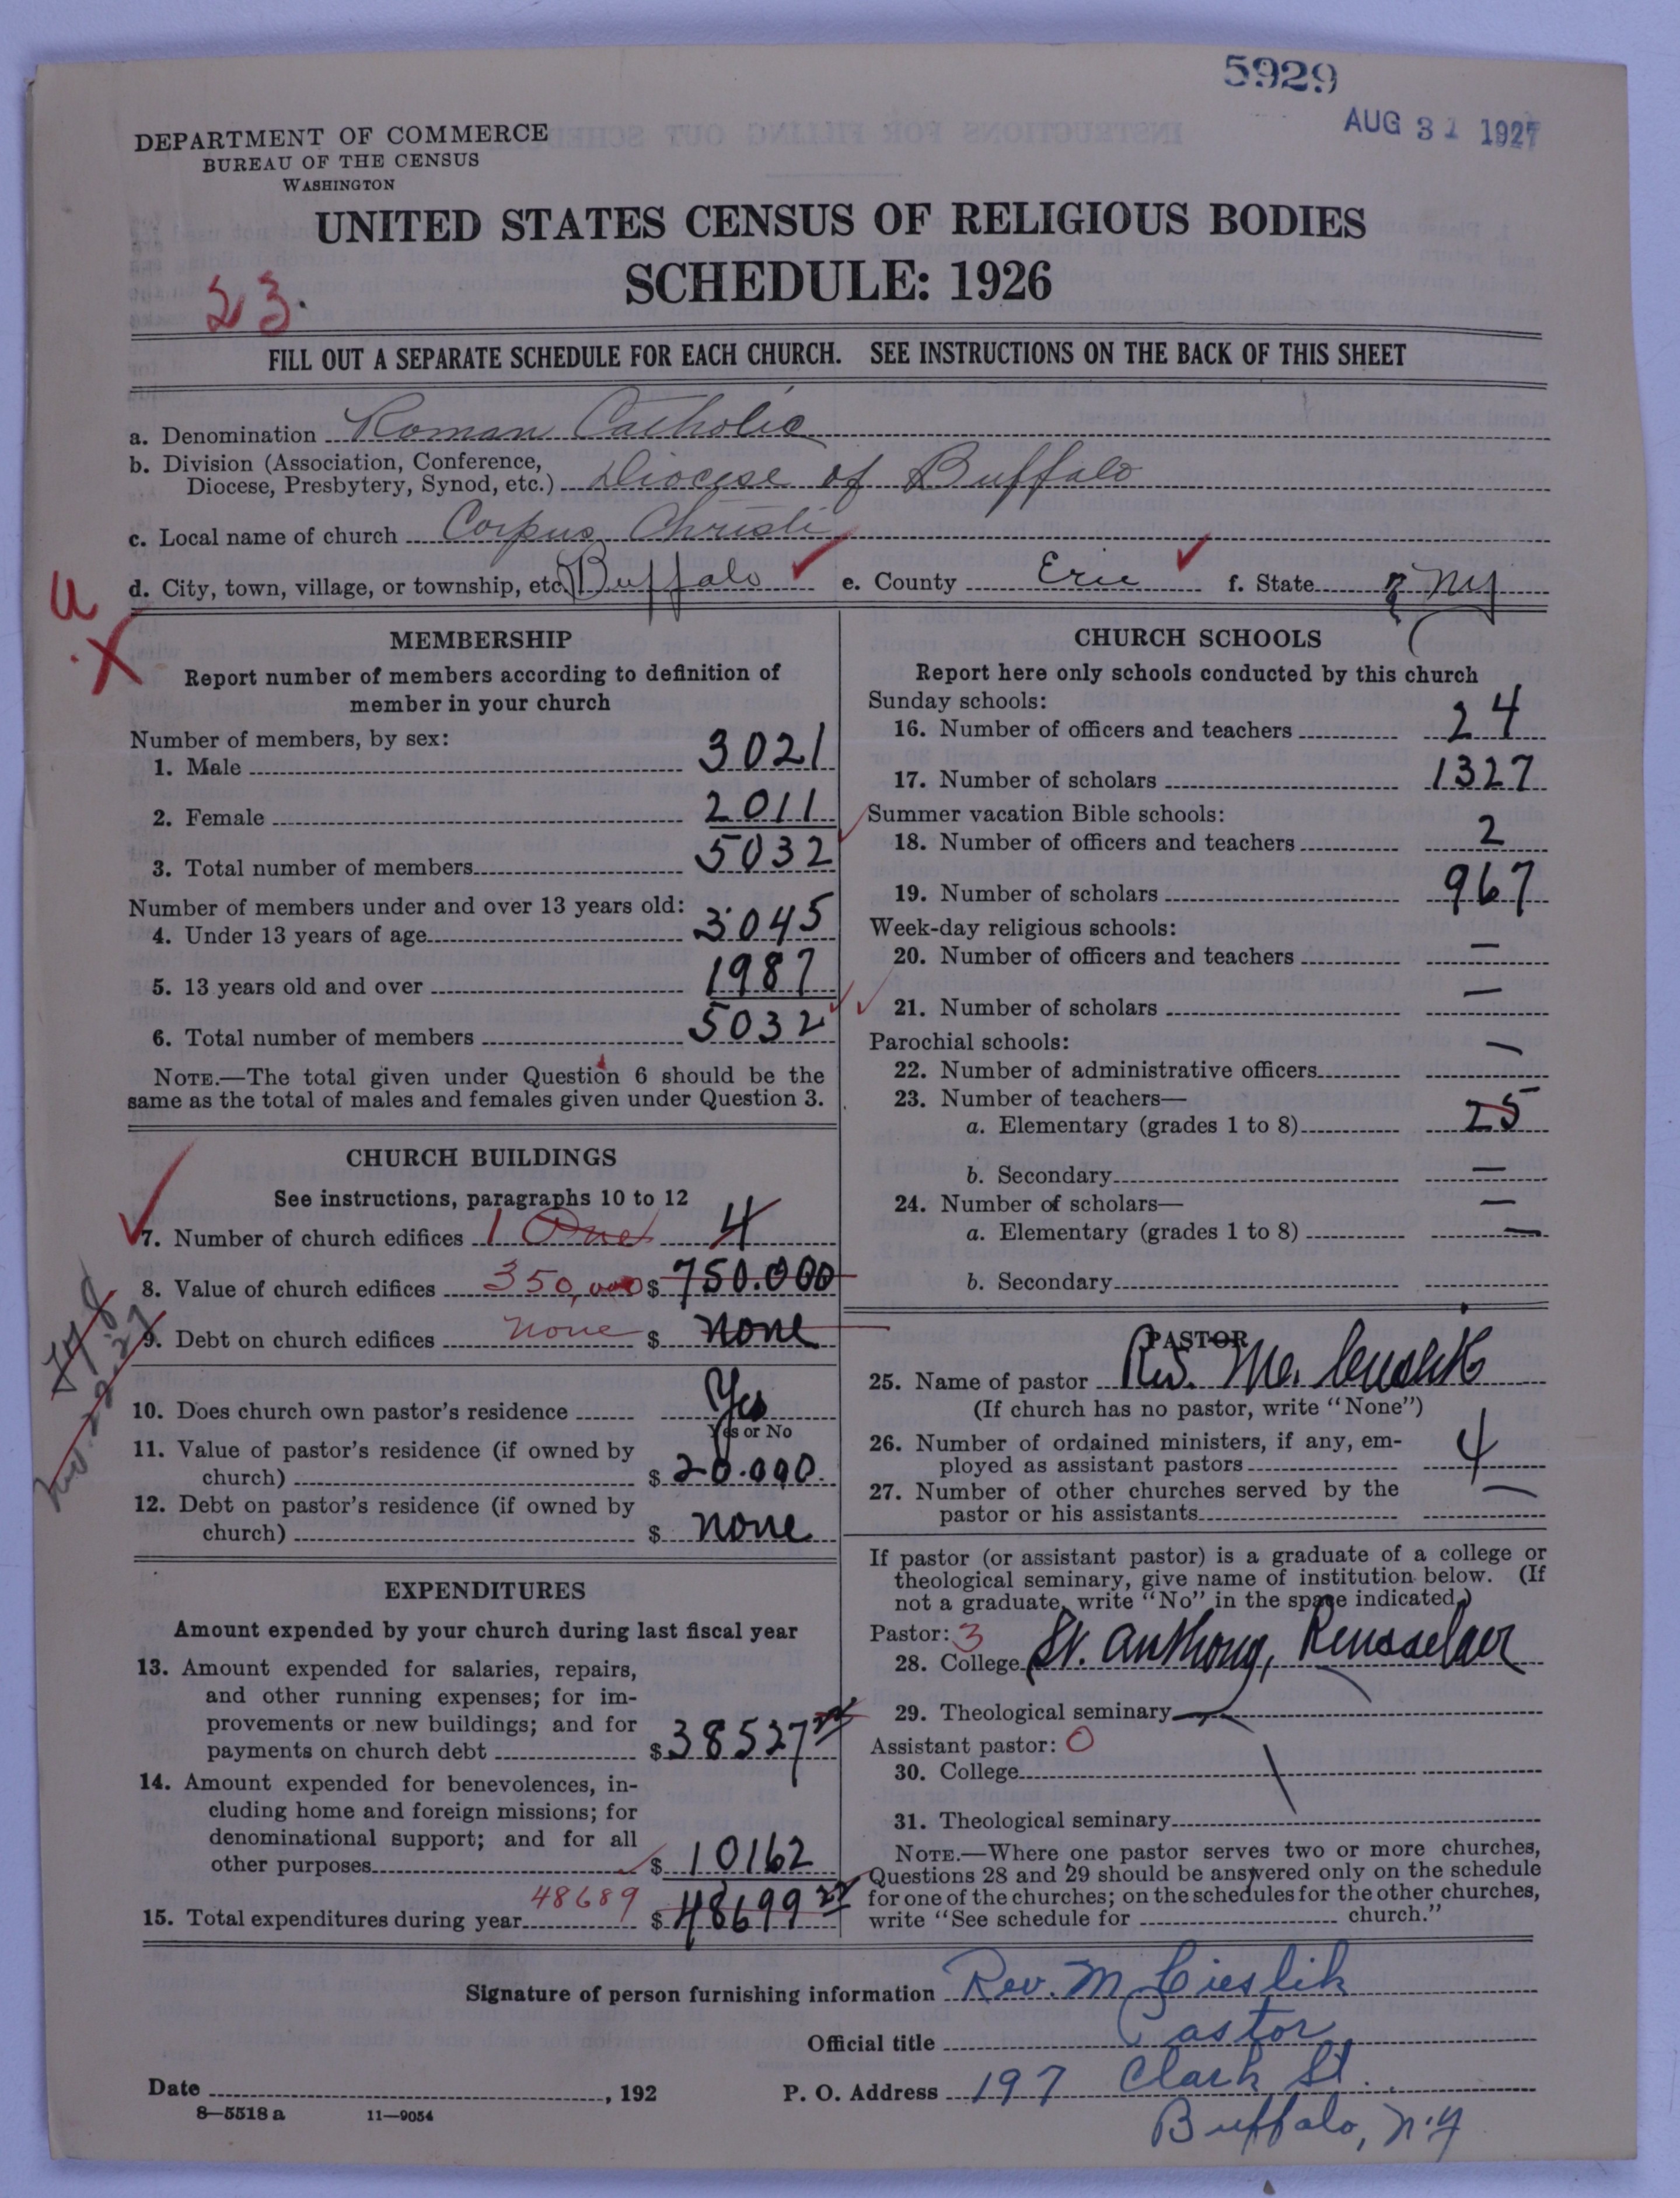 5929
AUG 31 1927
DEPARTMENT OF COMMERCE
BUREAU OF THE CENSUS
WASHINGTON
UNITED STATES CENSUS OF RELIGIOUS BODIES
SCHEDULE: 1926
23.
FILL OUT A SEPARATE SCHEDULE FOR EACH CHURCH. SEE INSTRUCTIONS ON THE BACK OF THIS SHEET
a. Denomination Roman Catholic
b. Division (Association, Conference,
Diocese, Presbytery, Synod, etc.) Diocese of Buffalo
c. Local name of church Corpus Christi
d. City, town, village, or township, etc. Buffalo e. County Erie f. State NY
MEMBERSHIP
Report number of members according to definition of
member in your church
Number of members, by sex:
1. Male 3021
2. Female 2011
3. Total number of members 5032
Number of members under and over 13 years old:
4. Under 13 years of age 3045
5. 13 years old and over 1987
6. Total number of members 5032
NOTE.—The total given under Question 6 should be the
same as the total of males and females given under Question 3.
CHURCH BUILDINGS
See instructions, paragraphs 10 to 12
7. Number of church edifices 1 One 4
8. Value of church edifices 350,000 $ 750.000
9. Debt on church edifices none $ none
10. Does church own pastor's residence Yes
Yes or No
11. Value of pastor's residence (if owned by
church) $ 20.000.
12. Debt on pastor's residence (if owned by
church) $ none
EXPENDITURES
Amount expended by your church during last fiscal year
13. Amount expended for salaries, repairs,
and other running expenses; for im-
provements or new buildings; and for
payments on church debt $ 38527
14. Amount expended for benevolences, in-
cluding home and foreign missions; for
denominational support; and for all
other purposes $ 10162
48689
15. Total expenditures during year $ 48699
CHURCH SCHOOLS
Report here only schools conducted by this church
Sunday schools:
16. Number of officers and teachers 24
17. Number of scholars 1327
Summer vacation Bible schools:
18. Number of officers and teachers 2
19. Number of scholars 967
Week-day religious schools:
20. Number of officers and teachers —
21. Number of scholars —
Parochial schools:
22. Number of administrative officers —
23. Number of teachers—
a. Elementary (grades 1 to 8) 25
b. Secondary —
24. Number of scholars— —
a. Elementary (grades 1 to 8) —
b. Secondary
PASTOR
25. Name of pastor Rev. M. Cieslik
(If church has no pastor, write "None")
26. Number of ordained ministers, if any, em-
ployed as assistant pastors 4
27. Number of other churches served by the
pastor or his assistants —
If pastor (or assistant pastor) is a graduate of a college or
theological seminary, give name of institution below. (If
not a graduate, write "No" in the space indicated.)
Pastor: 3
28. College St. Anthony, Rensselaer
29. Theological seminary
Assistant pastor: 0
30. College
31. Theological seminary
NOTE.—Where one pastor serves two or more churches,
Questions 28 and 29 should be answered only on the schedule
for one of the churches; on the schedules for the other churches,
write "See schedule for church."
Signature of person furnishing information Rev. M Cieslik
Official title Pastor
Date , 192 P. O. Address 197 Clark St.
Buffalo, N.Y
8—5518 a 11—9054